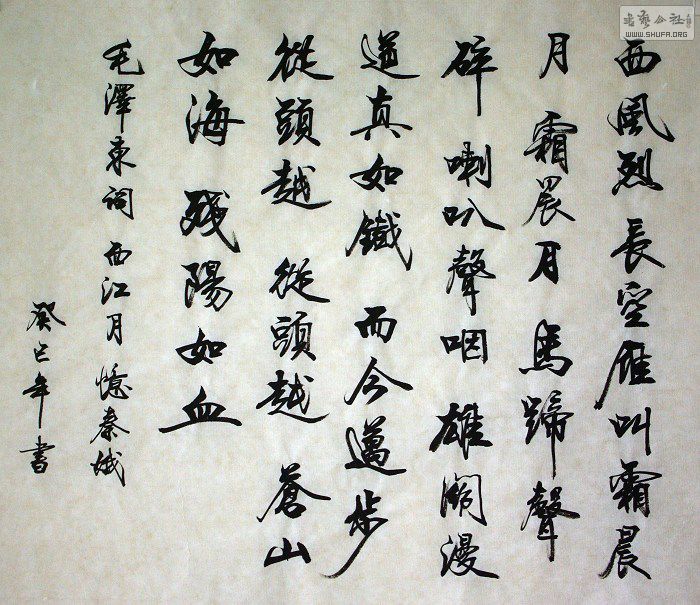 西風烈 長空雁叫霜晨
月 霜晨月 馬蹄聲
碎 喇叭聲咽 雄關漫
道真如鐵 而今邁步
從頭越 從頭越 蒼山
如海 殘陽如血
毛澤東詞 西江月 憶秦娥
癸巳年書
书艺公社
WWW.SHUFA.ORG